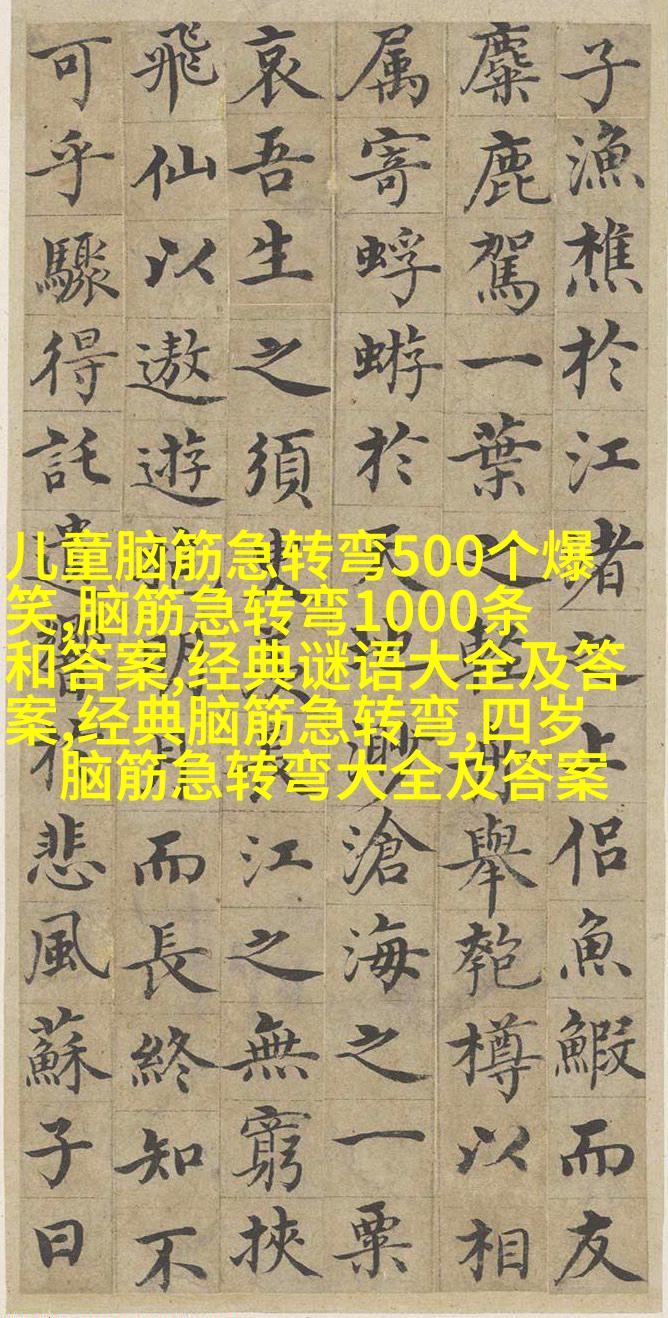 子漁樵於江渚之上侶魚鰕而友
麋鹿駕一葉之輕舟舉匏樽以相
属寄蜉蝣於天地渺滄海之一粟
哀吾生之須臾羨長江之無窮挾
飛仙以遨遊抱明月而長終知不
可乎驟得託遺響於悲風蘇子曰
儿童脑筋急转弯500个爆
笑,脑筋急转弯1000条
和答案,经典谜语大全及答
案,经典脑筋急转弯,四岁
脑筋急转弯大全及答案